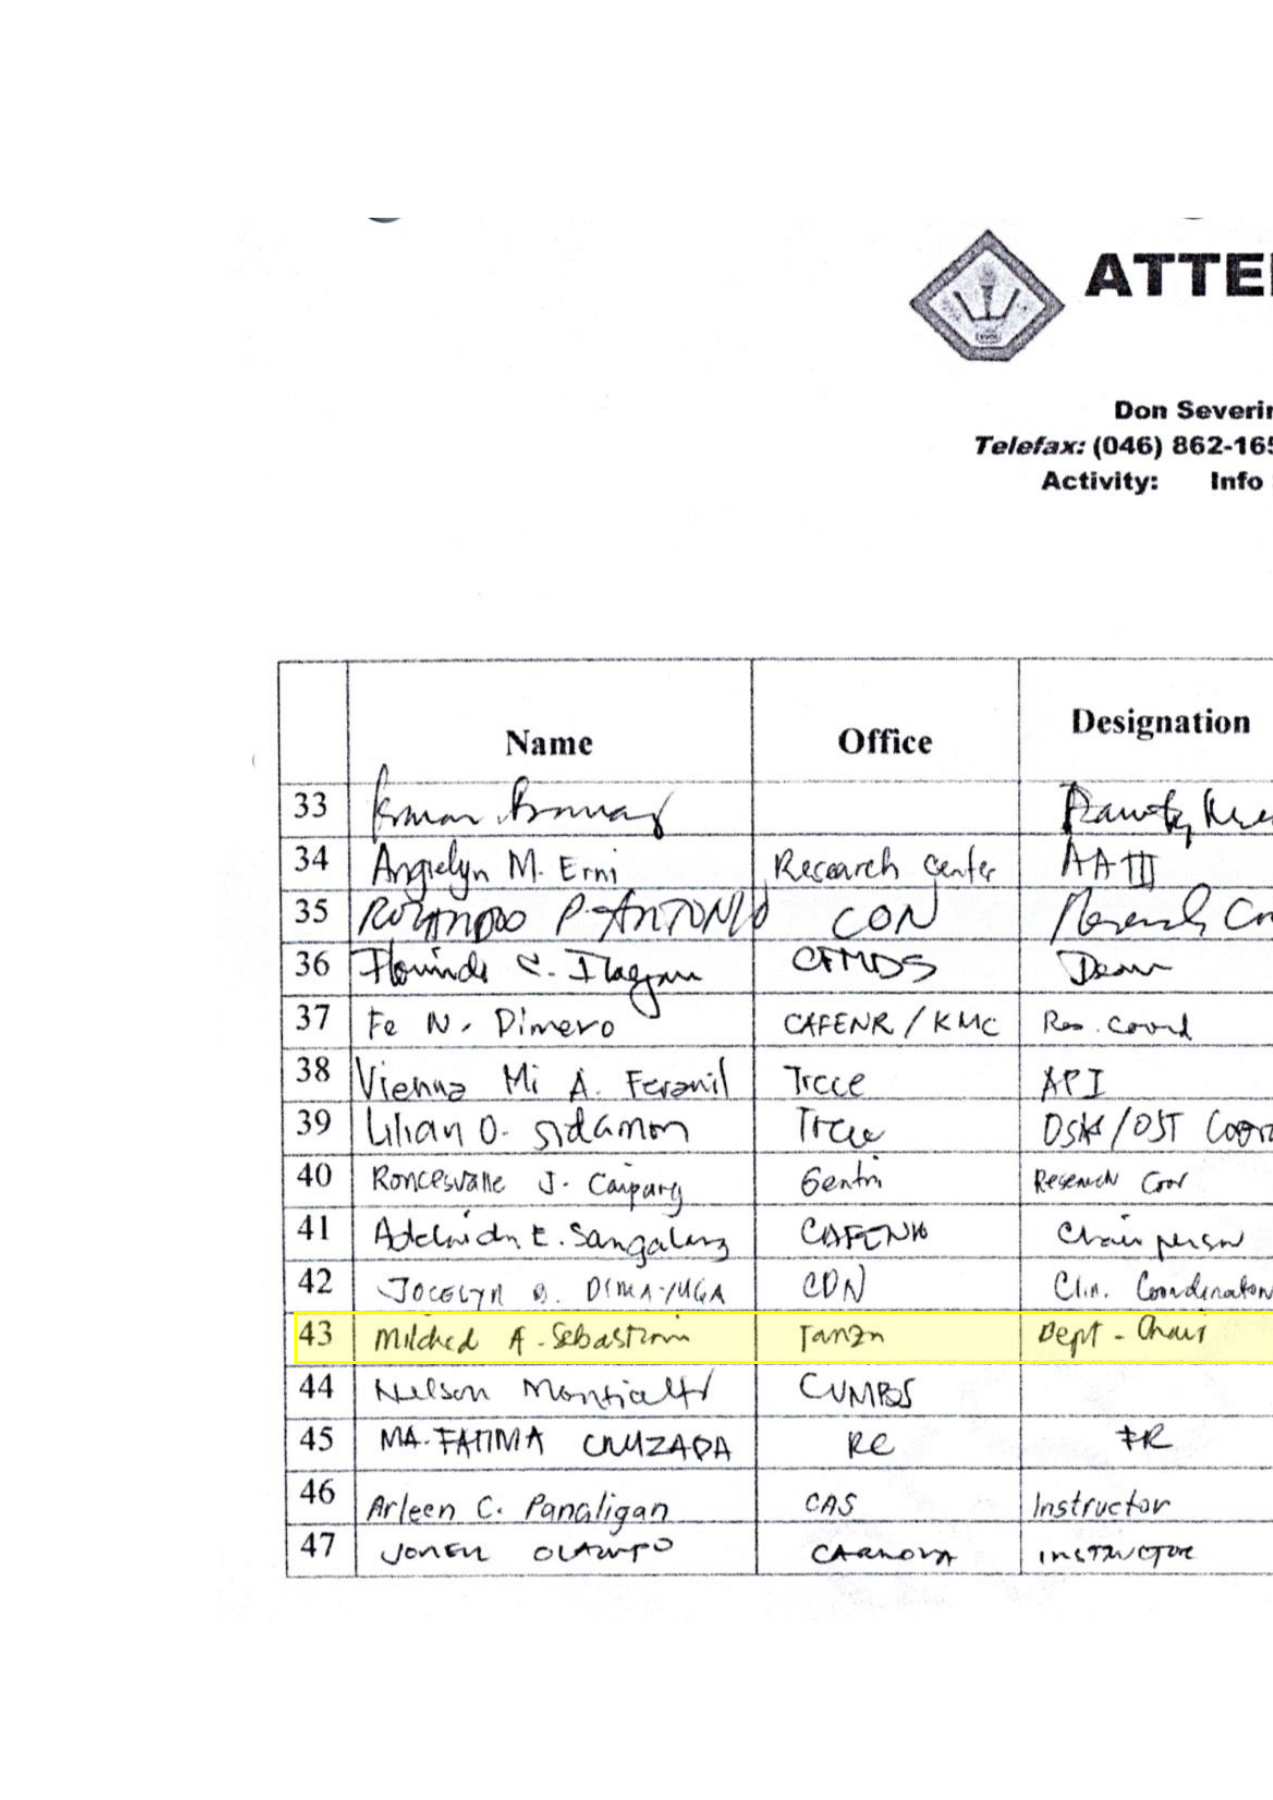 ATTE
Don Severin
Telefax: (046) 862-165
Activity: Info
Name Office Designation
33
34 Angielyn M. Erni Research Center AA III
35 ROLANDO P. ANTONIO CON Research Co
36 Florindo C. Ilagan CEMDS Dean
37 Fe N. Dimero CAFENR / KMC Res. Coord
38 Vienna Mi A. Feranil Trece API
39 Lilian O. Sidamon Trece OSAS/OJT Coor
40 Roncesvalle J. Caipang Gentri Research Coor
41 Adelaida E. Sangalang CAFENR Chairperson
42 JOCELYN B. DIMAYUGA CON Clin. Coordinator
43 Mildred A. Sebastian Tanza Dept. Chair
44 Nelson CVMBS
45 MA. FATIMA CRUZADA RC
46 Arleen C. Panaligan CAS Instructor
47 INSTRUCTOR